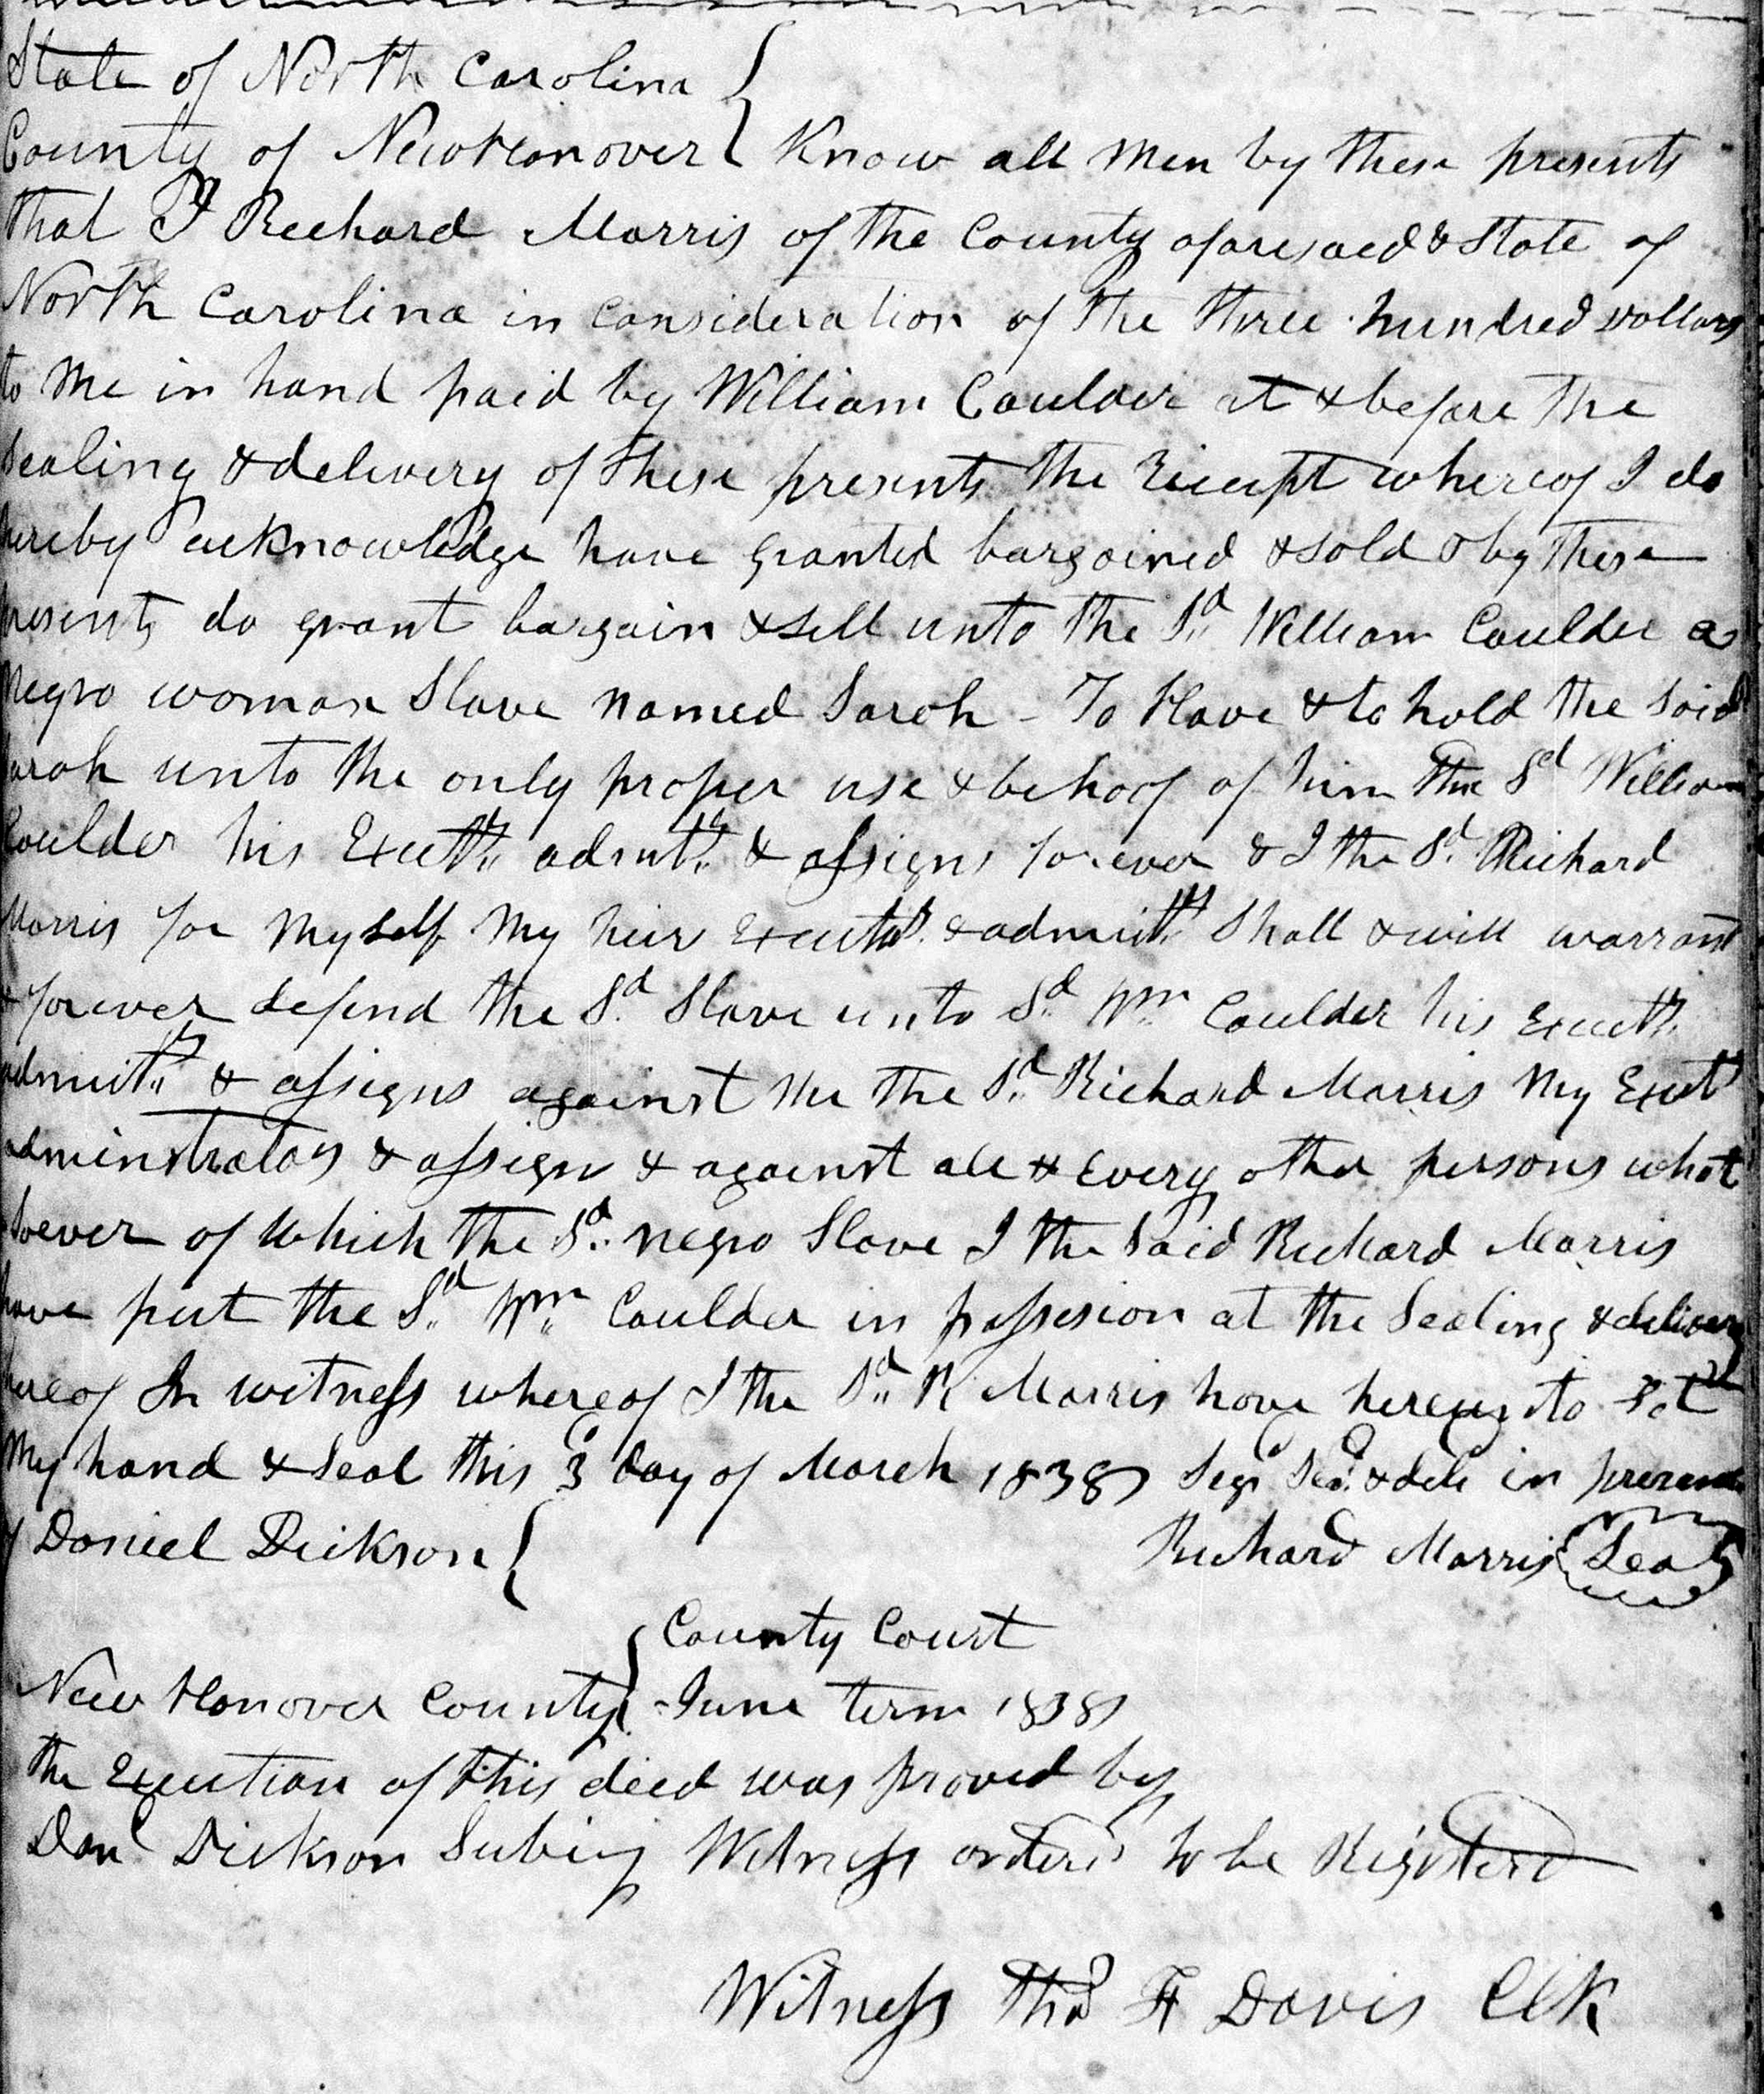 State of North Carolina
County of New Hanover Know all men by these presents
that I Richard Morris of the County aforesaed & State of
North Carolina in consideration of the three hundred dollars
to me in hand paid by William Coulder at & before the
sealing & delivery of these presents the Receipt whereof I do
hereby acknowledge have granted bargained & sold & by these
presents do grant bargain & sell unto the Sd William Coulder a
Negro woman Slave named Sarah - To Have & to hold the said
Sarah unto the only proper use & behoof of him the Sd William
Coulder his Exutrs admtrs & assigns forever & I the Sd Richard
Morris for myself my heir Executrs & admintrs Shall & will warrant
& forever defend the Sd Slave unto Sd Wm Coulder his Executrs
admintrs & assigns against me the Sd Richard Morris My Exut
adminstrators & assigns & against all & Every other persons what
soever of which the Sd negro Slave I the said Richard Morris
have put the Sd Wm Coulder in possesion at the Sealing & delivery
hereof In witness whereof I the Sd R Morris have hereunto set
My hand & Seal this 3 day of March 1838 in presence
of Daniel Dickson Richard Morris Seal
County Court
New Hanover County June term 1838
the Execution of this deed was proved by
Danl Dickson Witness orderd to be Registerd
Witness Thos F Davis Clk